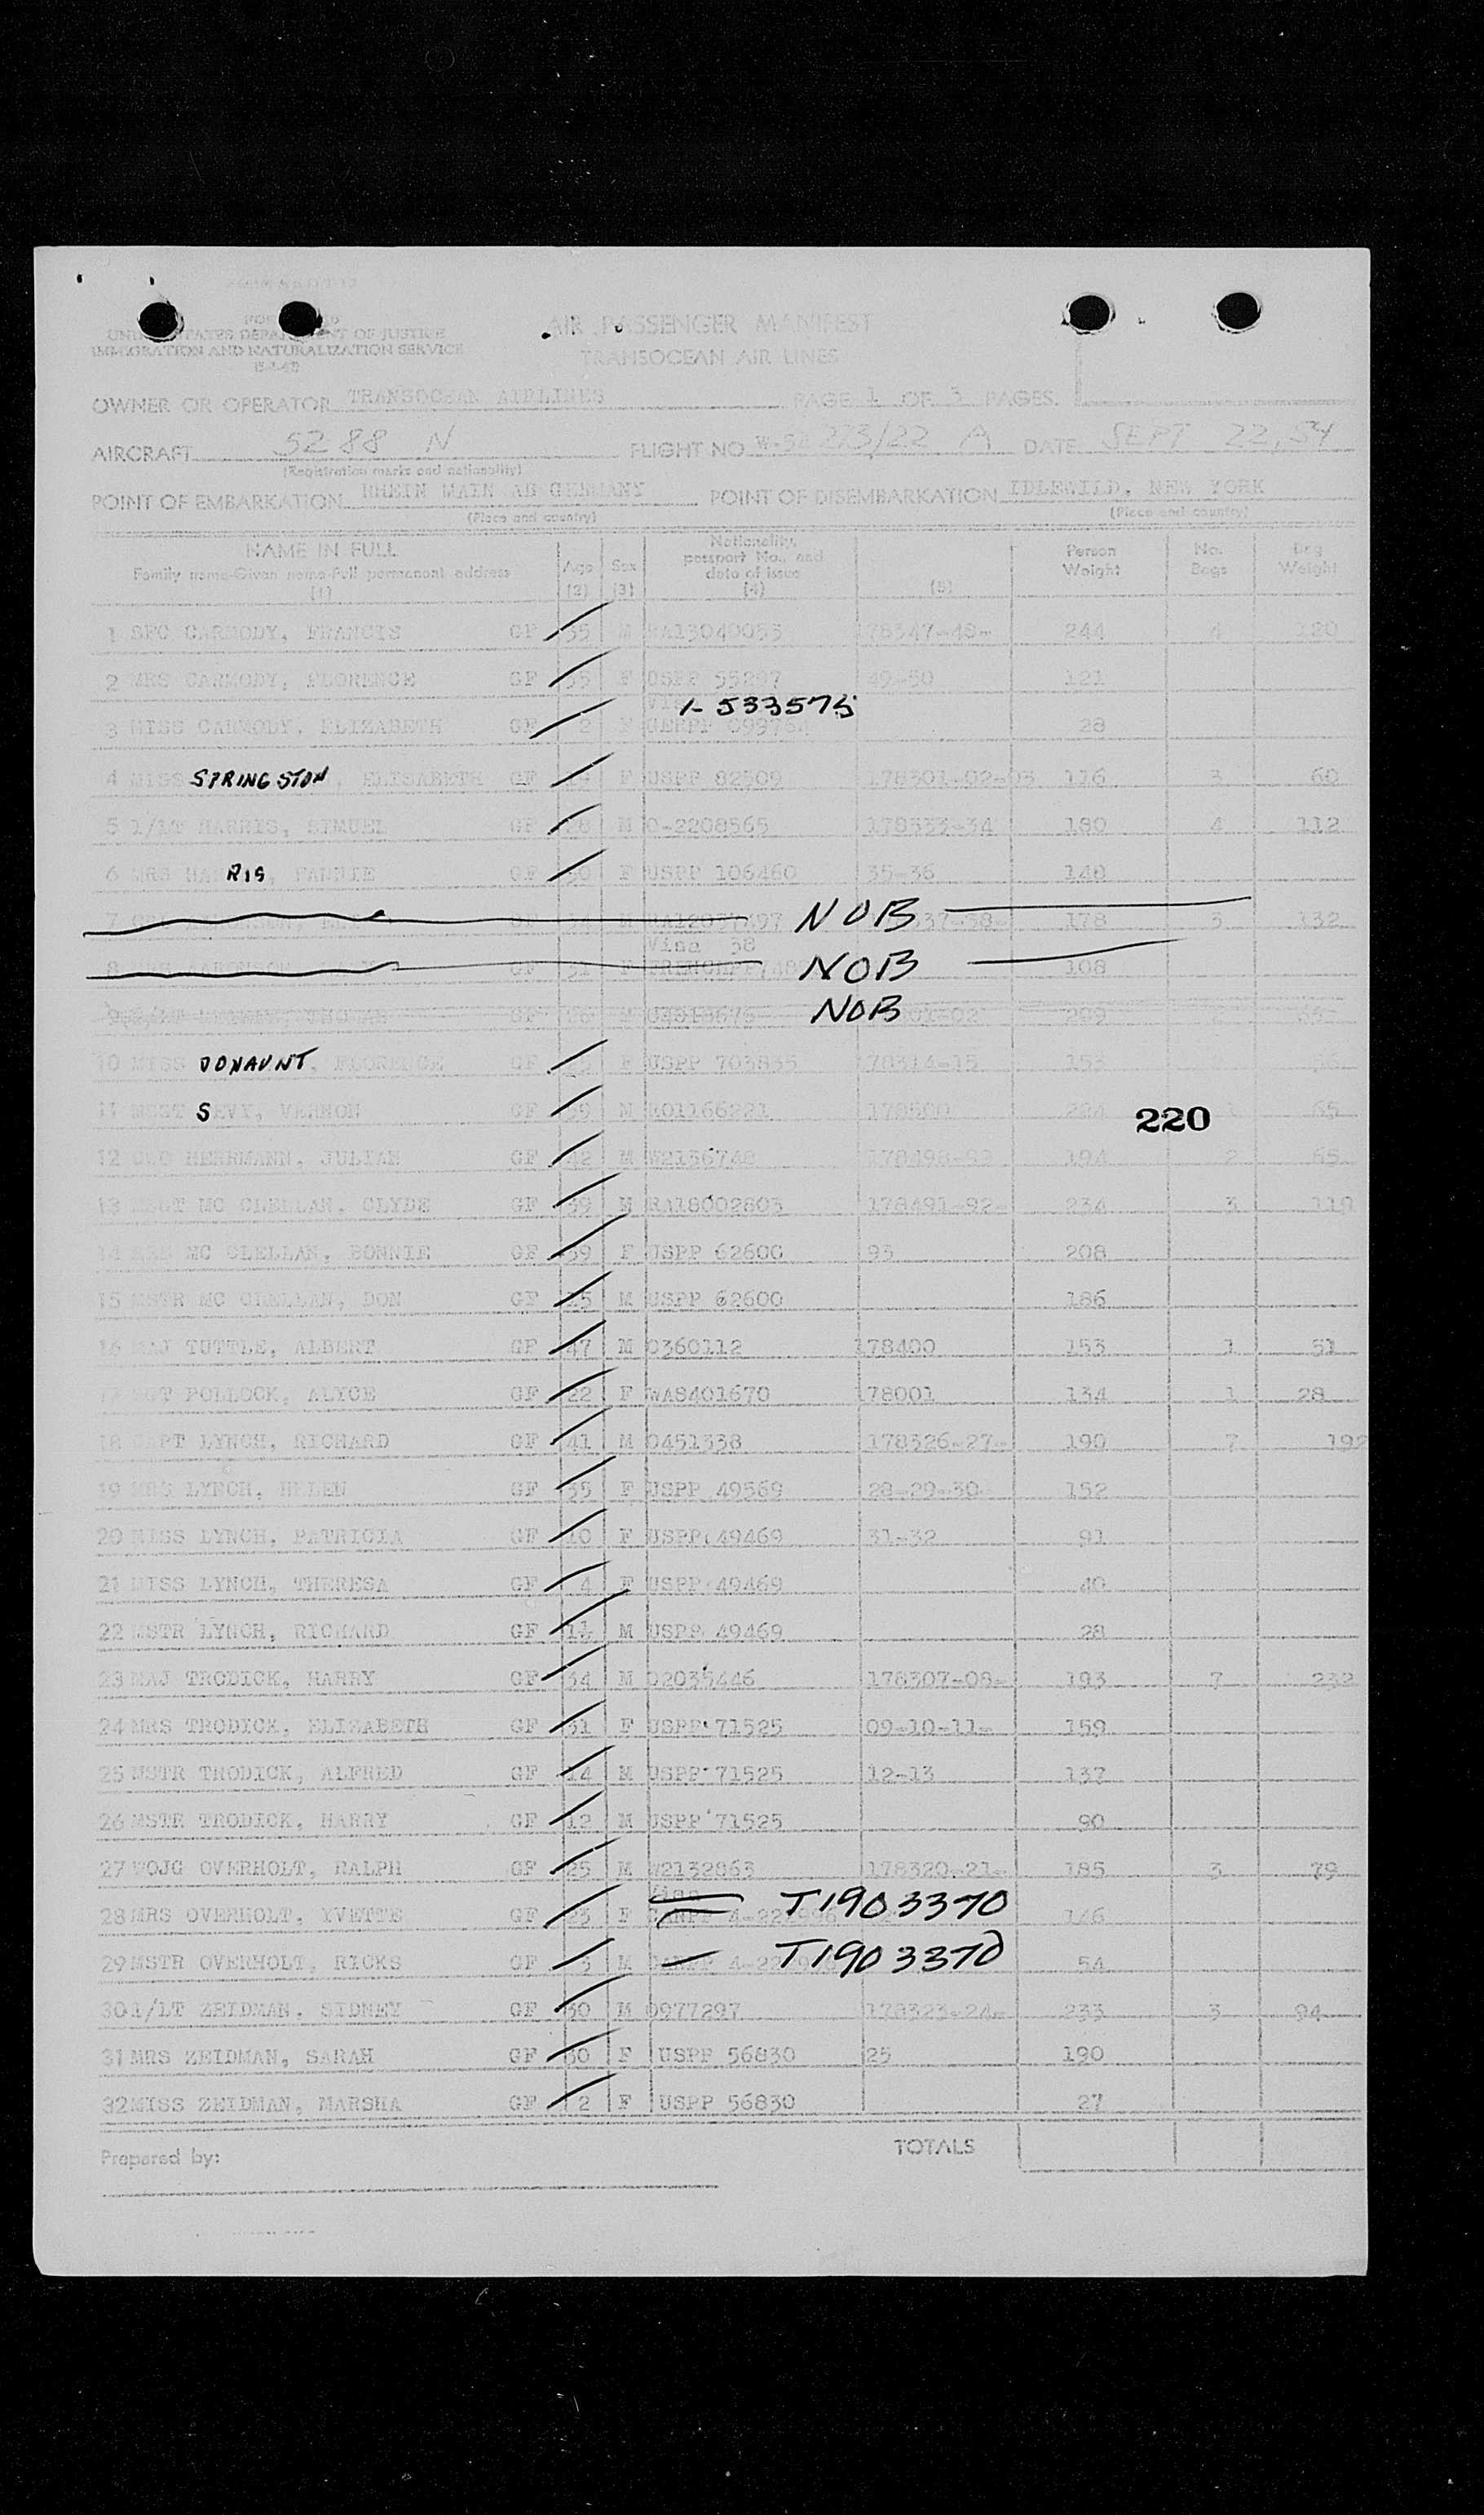 UNITED STATES DEPARTMENT OF JUSTICE
IMMIGRATION AND NATURALIZATION SERVICE
AIR PASSENGER MANIFEST
TRANSOCEAN AIR LINES
OWNER OR OPERATOR TRANSOCEAN AIRLINES PAGE 1 OF 3 PAGES.
AIRCRAFT 5288 N FLIGHT NO 223/22 A DATE SEPT 22, 54
(Registration marks and nationality)
POINT OF EMBARKATION RHEIN MAIN AB GERMANY POINT OF DISEMBARKATION IDLEWILD, NEW YORK
(Place and country) (Place and country)
NAME IN FULL
Family name-Given name-Full permanent address
(1)
Age (2) Sex (3) Nationality, passport No., and date of issue (4) (5) Person Weight No. Bags Bag Weight
1 SFC CARMODY, FRANCIS GF 35 M RA13040053 78347-48- 244 4 120
2 MRS CARMODY, FLORENCE GF 35 F USPP 55297 49-50 121
1-533575
3 MISS CARMODY, ELIZABETH GF 2 F 28
4 MISS SPRINGSTON, ELISABETH GF F USPP 82509 178301-02-03 116 3 60
5 1/LT HARRIS, SIMUEL GF 28 M O-2208565 178333-34 180 4 112
6 MRS HARRIS, FANNIE GF 30 F USPP 106460 35-36 140
7 GF 34 M NOB 37-38- 178 3 132
Visa
8 GF 31 F NOB 108
9 GF M NOB 209
10 MISS DONAUNT, FLORENCE GF F USPP 703835 178314-15 153
11 MSGT SEVY, VERNON GF 39 M 178500 65
220
12 CWO HERRMANN, JULIAN GF 42 M W2136748 178498-99 194 2 65
13 MSGT MC CLELLAN, CLYDE GF 39 M RA18002803 178491-92- 234 3 110
14 MRS MC CLELLAN, BONNIE GF 39 F USPP 62600 93 208
15 MSTR MC CLELLAN, DON GF 15 M USPP 62600 186
16 MAJ TUTTLE, ALBERT GF 47 M O360112 178400 153 1 51
17 SGT POLLOCK, ALYCE GF 22 F WA8401670 178001 134 1 28
18 CAPT LYNCH, RICHARD GF 41 M O451338 178326-27- 190 7 192
19 MRS LYNCH, HELEN GF 35 F USPP 49569 28-29-30 152
20 MISS LYNCH, PATRICIA GF 10 F USPP 49469 31-32 91
21 MISS LYNCH, THERESA GF 4 F USPP 49469 40
22 MSTR LYNCH, RICHARD GF M USPP 49469 28
23 MAJ TRODICK, HARRY GF 34 M O2035446 178307-08- 193 7 232
24 MRS TRODICK, ELIZABETH GF 31 F USPP 71525 09-10-11- 159
25 MSTR TRODICK, ALFRED GF 14 M USPP 71525 12-13 137
26 MSTR TRODICK, HARRY GF 12 M USPP 71525 90
27 WOJG OVERHOLT, RALPH GF 25 M W2132863 178320-21- 185 3 79
28 MRS OVERHOLT, YVETTE GF 23 F T1903370 146
29 MSTR OVERHOLT, RICKS GF 3 M T1903370 54
30 1/LT ZEIDMAN, SIDNEY GF 30 M O977297 178323-24- 233 3 94
31 MRS ZEIDMAN, SARAH GF 30 F USPP 56830 25 190
32 MISS ZEIDMAN, MARSHA GF 2 F USPP 56830 27
Prepared by: TOTALS